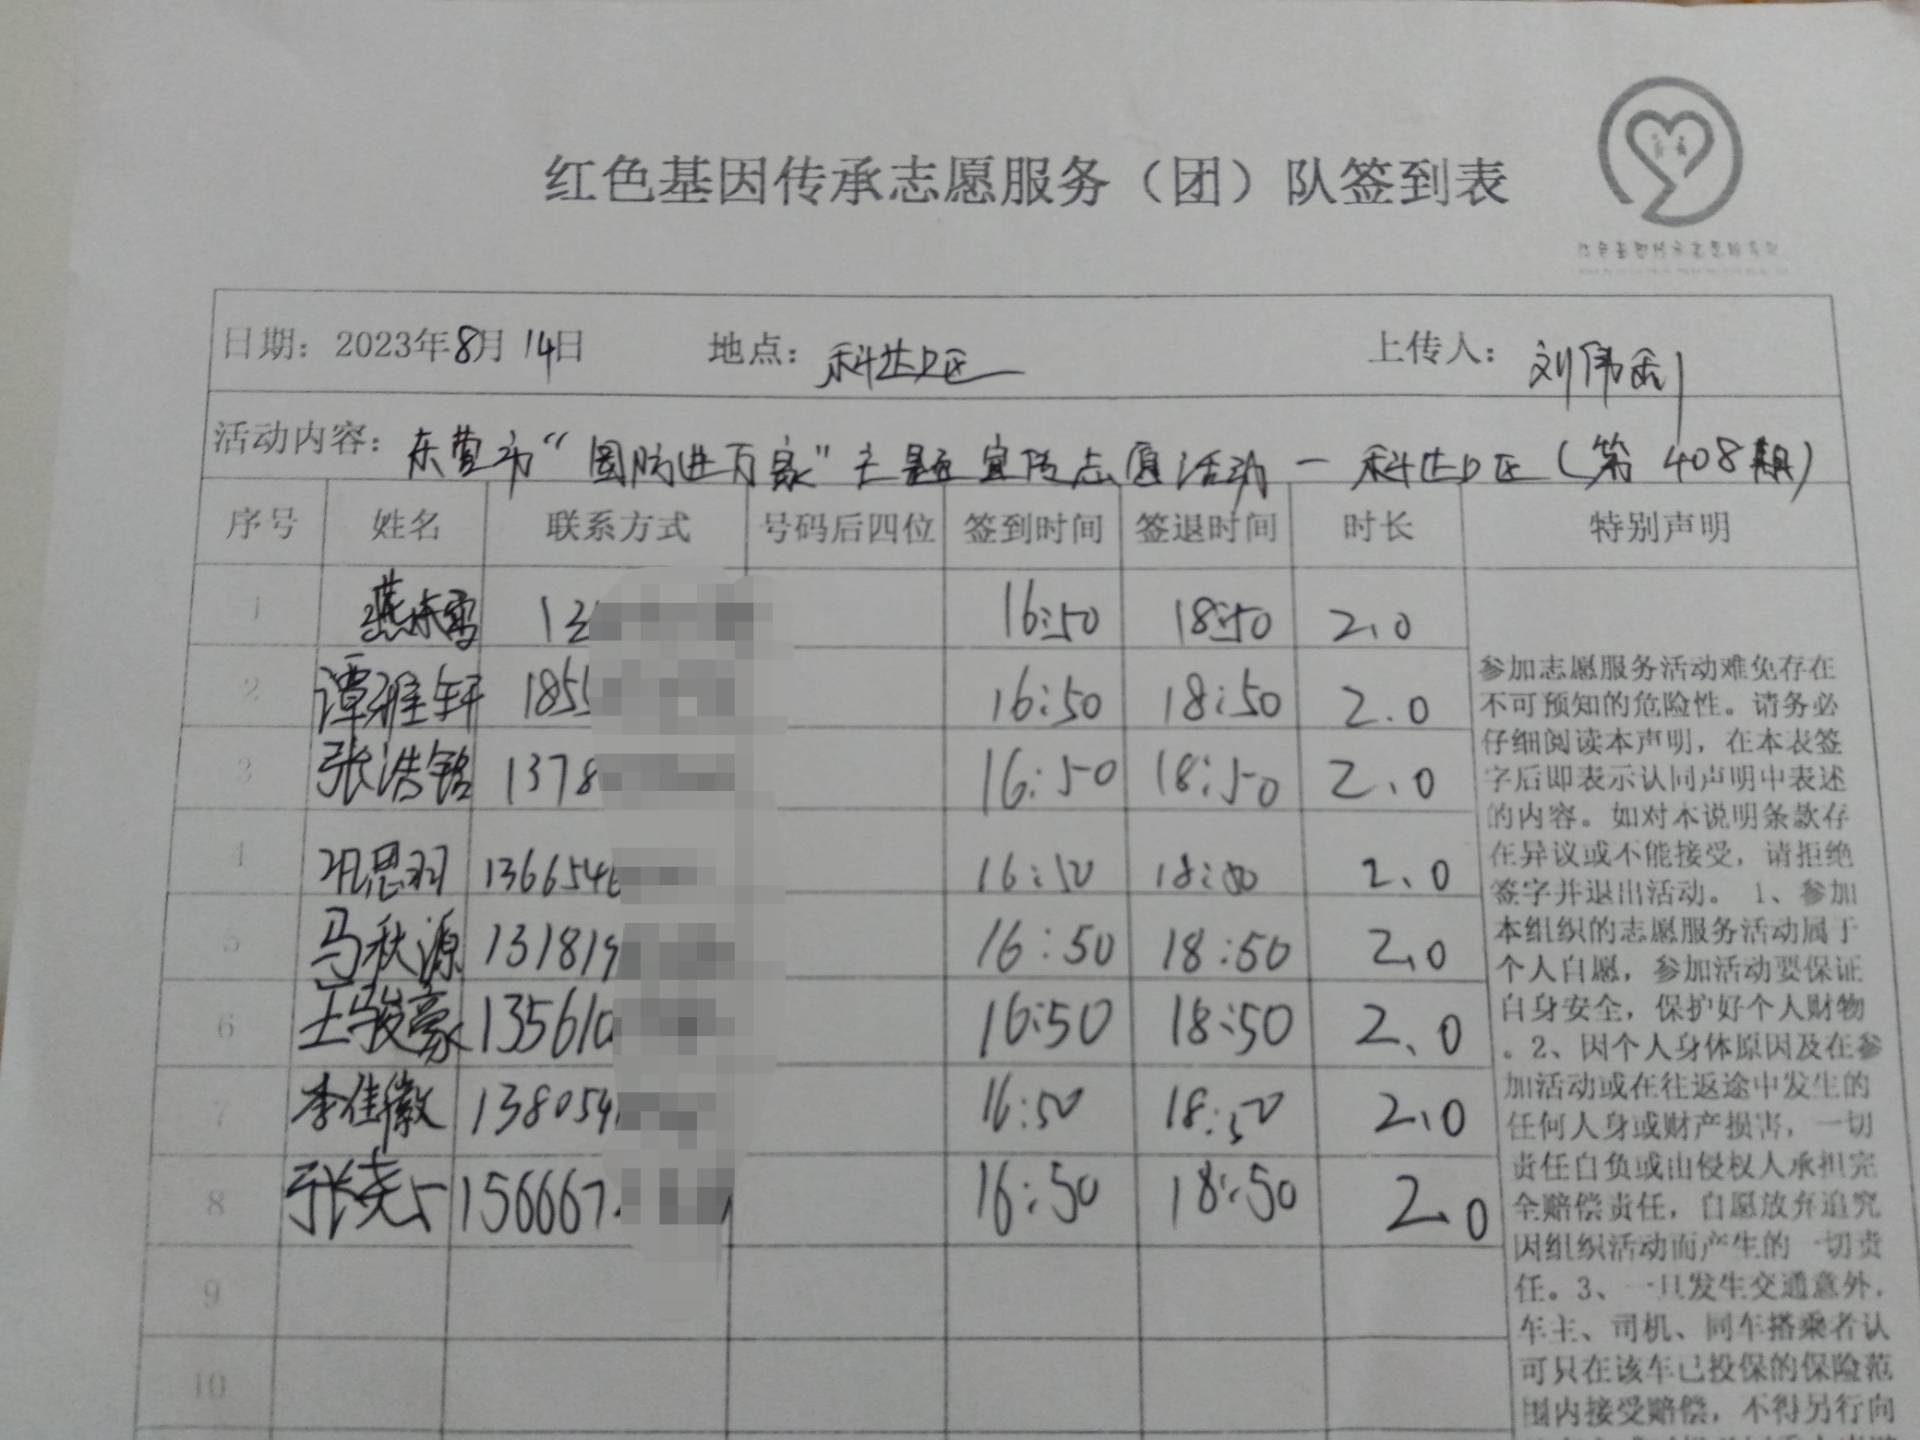 红色基因传承志愿服务（团）队签到表
日期：2023年8月14日 地点：科达D区 上传人：刘伟利
活动内容：东营市“国防进万家”主题宣传志愿活动－科达D区（第408期）
序号 姓名 联系方式 号码后四位 签到时间 签退时间 时长 特别声明
1 燕东雪 13 16:50 18:50 2.0
2 谭雅轩 185 16:50 18:50 2.0
3 张浩铭 1378 16:50 18:50 2.0
4 巩思羽 136654 16:50 18:50 2.0
5 马秋源 13181 16:50 18:50 2.0
6 王骏豪 13561 16:50 18:50 2.0
7 李佳徽 138054 16:50 18:50 2.0
8 张尧 156667 16:50 18:50 2.0
9
10
参加志愿服务活动难免存在
不可预知的危险性。请务必
仔细阅读本声明，在本表签
字后即表示认同声明中表述
的内容。如对本说明条款存
在异议或不能接受，请拒绝
签字并退出活动。1、参加
本组织的志愿服务活动属于
个人自愿，参加活动要保证
自身安全，保护好个人财物
。2、因个人身体原因及在参
加活动或在往返途中发生的
任何人身或财产损害，一切
责任自负或由侵权人承担完
全赔偿责任，自愿放弃追究
因组织活动而产生的一切责
任。3、一旦发生交通意外，
车主、司机、同车搭乘者认
可只在该车已投保的保险范
围内接受赔偿，不得另行向